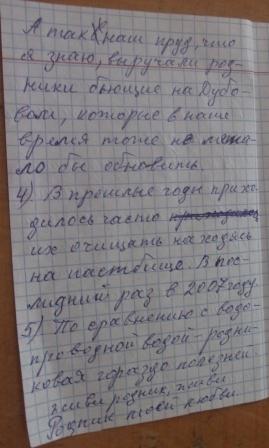 А так X наш пруд, что
я знаю, выручали род-
ники бьющие на Дубо-
вом, которые в наше
время тоже не меша-
ло бы обновить.
4) В прошлые годы прихо-
дилось часто приходилось
их очищать находясь
на пастбище. В пос-
ледний раз в 2007 году.
5) По сравнению с водо-
проводной водой родни-
ковая гораздо полезней
живи родник, живи
Родник моей любви.